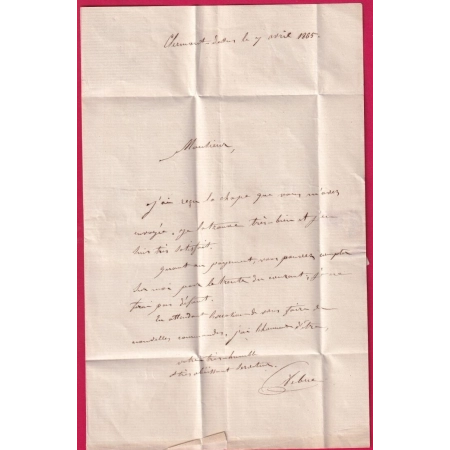 Clermont-  le 7 avril 1885.
Monsieur,
j'ai reçu la chape que vous m'avez
envoyée, je la trouve très bien et j'en
suis très satisfait.
quant au payement, vous pouvez compter
sur moi pour le trente du courant, je ne
ferai pas défaut.
En attendant  de vous faire de
nouvelles commandes, j'ai l'honneur d'être,
votre très humble
et très obéissant serviteur.